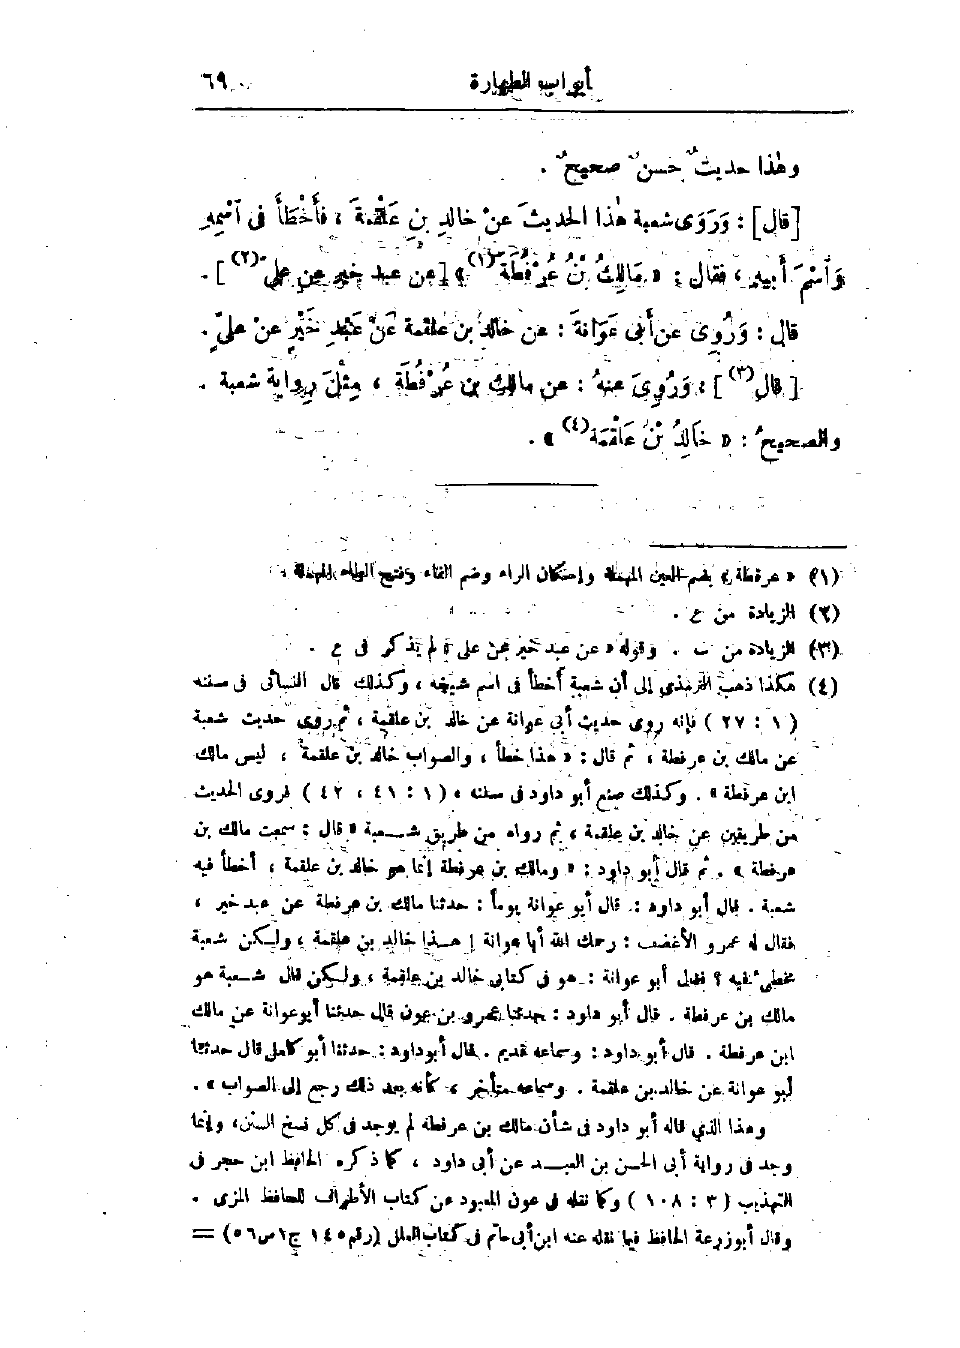 أبواب الطهارة ٦٩
وهٰذا حديثٌ حسنٌ صحيحٌ .
[قال] : وَرَوَى شعبة هٰذا الحديثَ عنْ خالدِ بنِ عَلْقَمَةَ ، فأَخْطَأَ فى اسْمِهِ
وَاسْمَ أَبيهِ ، فقال : « مَالِكُ بْنُ عُرْفُطَةَ(١) » [عن عبد خيرٍ عن علىٍّ(٢)] .
قال : وَرُوِىَ عن أبى عَوَانَةَ : عن خالدِ بن علقمة عَنْ عَبْدِ خَيْرٍ عنْ علىٍّ .
[قال(٣)] : وَرُوِىَ عنهُ : عن مالكِ بن عُرْفُطَةَ ، مِثْلَ رِوايةِ شعبة .
والصحيحُ : « خَالِدُ بْنُ عَلْقَمَةَ(٤) » .
(١) « عرفطة » بضم العين المهملة وإسكان الراء وضم الفاء وفتح الطاء المهملة .
(٢) الزيادة من ع .
(٣) الزيادة من ب . وقوله « عن عبد خير عن على » لم يذكر فى ع .
(٤) هكذا ذهب الترمذى إلى أن شعبة أخطأ فى اسم شيخه ، وكذلك قال النسائى فى سننه
( ١ : ٢٧ ) فإنه روى حديث أبى عوانة عن خالد بن علقمة ، ثم روى حديث شعبة
عن مالك بن عرفطة ، ثم قال : « هذا خطأ ، والصواب خالد بن علقمة ، ليس مالك
ابن عرفطة » . وكذلك صنع أبو داود فى سننه ، ( ١ : ٤١ ، ٤٢ ) فروى الحديث
من طريقين عن خالد بن علقمة ، ثم رواه من طريق شعبة « قال : سمعت مالك بن
عرفطة » . ثم قال أبو داود : « ومالك بن عرفطة إنما هو خالد بن علقمة ، أخطأ فيه
شعبة . قال أبو داود : قال أبو عوانة يوماً : حدثنا مالك بن عرفطة عن عبد خير ،
فقال له عمرو الأغضف : رحمك الله أبا عوانة ! هذا خالد بن علقمة ، ولكن شعبة
مخطئ فيه ؟ فقال أبو عوانة : هو فى كتابى خالد بن علقمة ، ولكن قال شعبة هو
مالك بن عرفطة . قال أبو داود : حدثنا عمرو بن عون قال حدثنا أبو عوانة عن مالك
ابن عرفطة . قال أبو داود : وسماعه قديم . قال أبو داود : حدثنا أبو كامل قال حدثنا
أبو عوانة عن خالد بن علقمة . وسماعه متأخر ، كأنه بعد ذلك رجع إلى الصواب » .
وهذا الذي قاله أبو داود فى شأن مالك بن عرفطة لم يوجد فى كل نسخ السنن ، وإنما
وجد فى رواية أبى الحسن بن العبد عن أبى داود ، كما ذكره الحافظ ابن حجر فى
التهذيب ( ٣ : ١٠٨ ) وكما نقله فى عون المعبود عن كتاب الأطراف للحافظ المزى .
وقال أبو زرعة الحافظ فيما نقله عنه ابن أبى حاتم فى كتاب العلل (رقم ١٤٥ ج ١ ص ٥٦) =